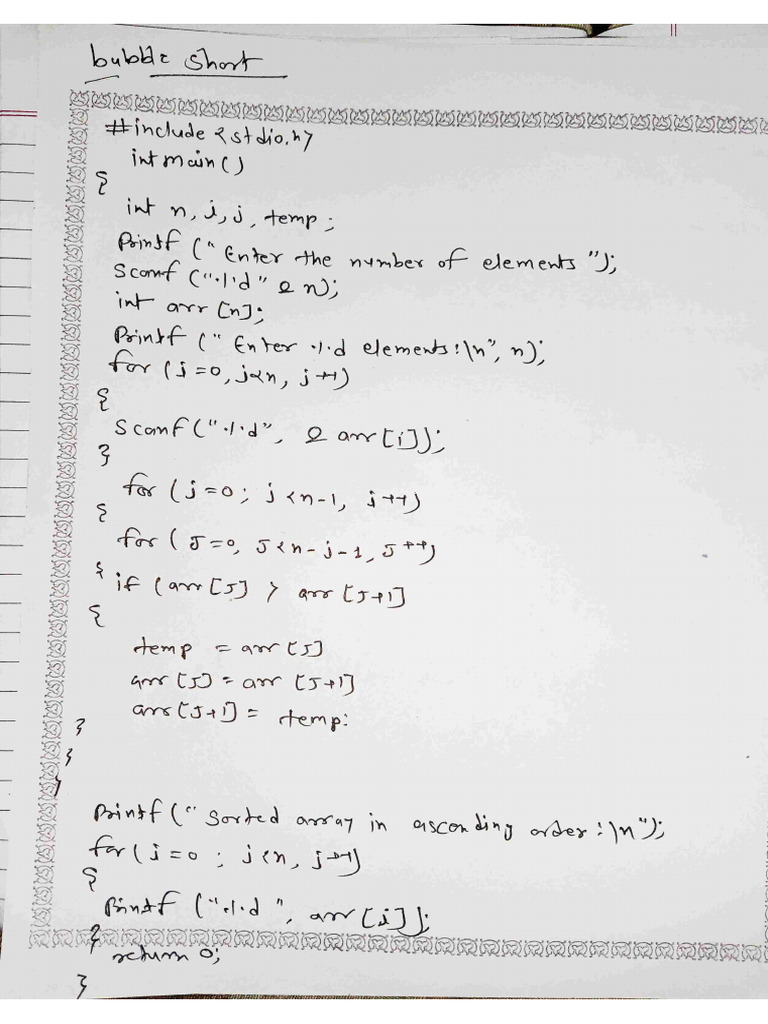 bubble short
#include <stdio.h>
int main()
{
int n, i, j, temp;
Printf ("Enter the number of elements");
Scanf ("%d" & n);
int arr [n];
Printf ("Enter %d elements:\n", n);
for (i=0, i<n, i++)
{
Scanf ("%d", & arr[i]);
}
for (i=0; i<n-1, i++)
{
for (J=0, J<n-i-1, J++)
{ if (arr[J] > arr [J+1]
{
temp = arr [J]
arr [J] = arr [J+1]
arr [J+1] = temp:
}
}
}
Printf (" Sorted array in asconding order:\n");
for (i=0 ; i<n, i++)
{
Printf ("%d ", arr [i]);
}
return 0;
}